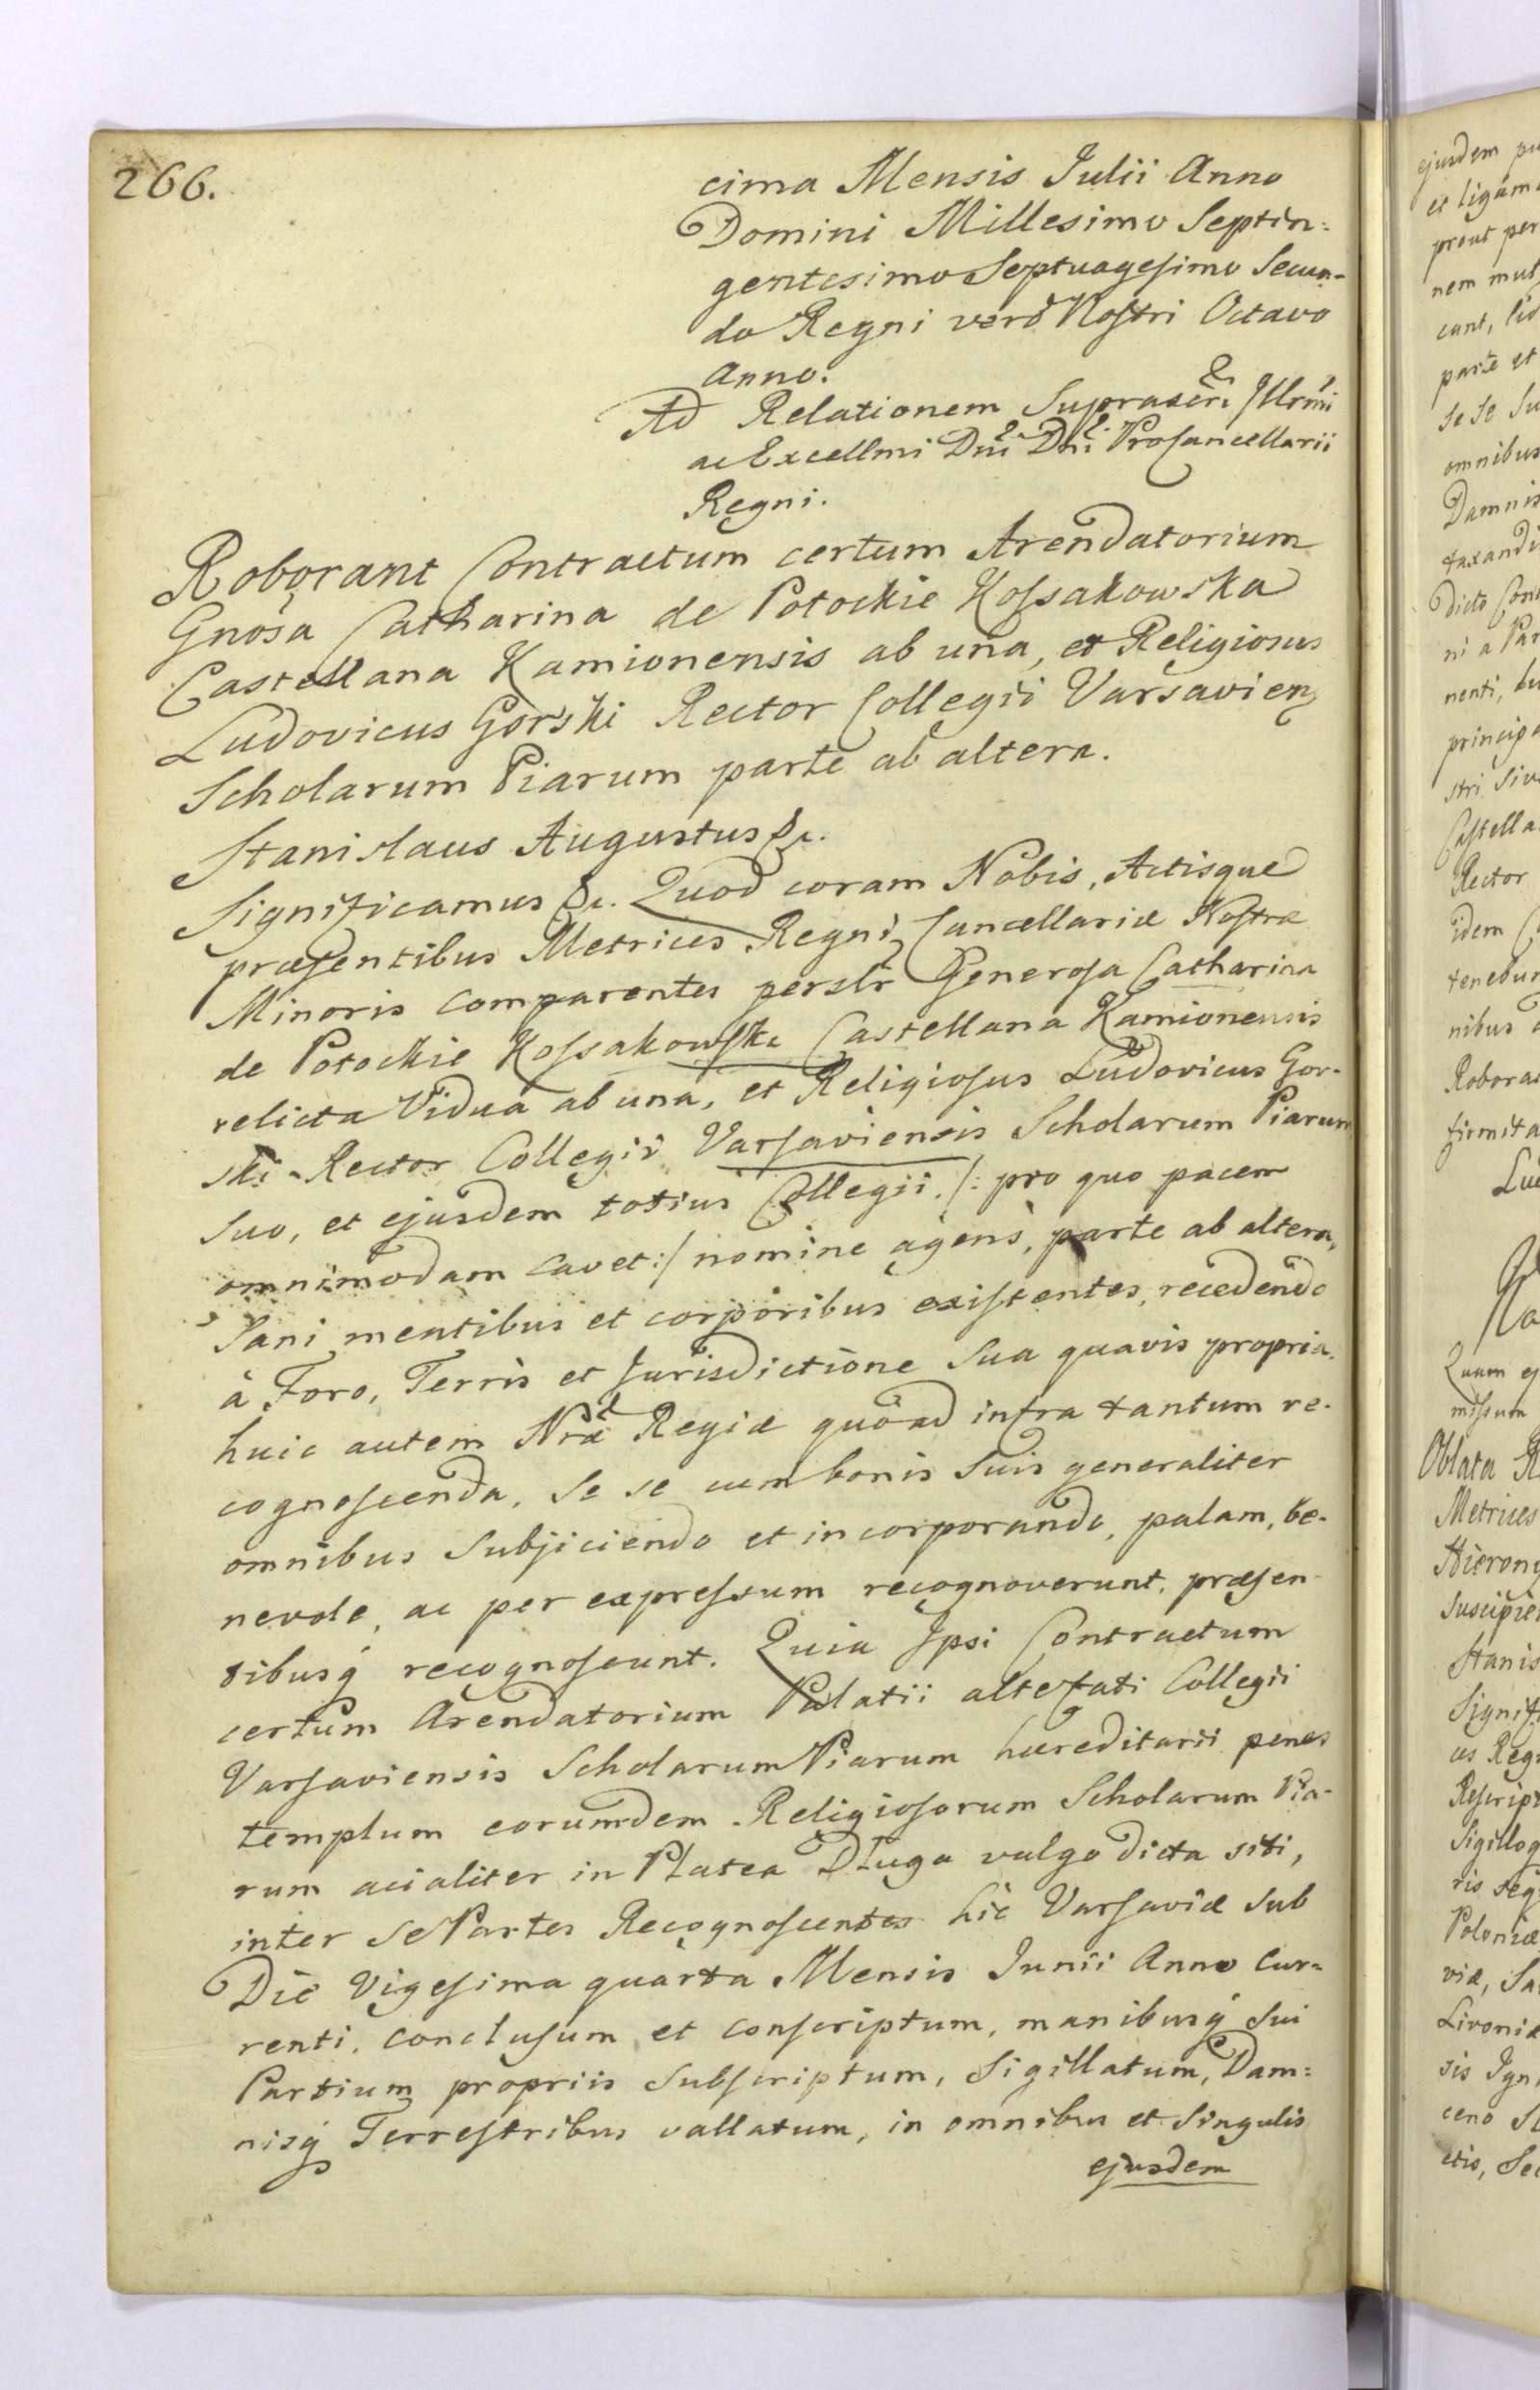 266.
cima Mensis Julii Anno
Domini Millesimo Septin=
gentesimo Septuagesimo Secun-
do Regni verò Nostri Octavo
Anno.
Ad Relationem Suprascri Illrmi
ac Excellmi Dni Dni ProCancellarii
Regni.
Roborant Contractum certum Arendatorium
Gnosa Catharina de Potockie Kossakowska
Castellana Kamionensis ab una, et Religiosus
Ludovicus Gorski Rector Collegii Varsavien
Scholarum Piarum parte ab altera.
Stanislaus Augustus &c.
Significamus &c. Quod coram Nobis, Actisque
præsentibus Metrices Regni Cancellariæ Nostræ
Minoris comparentes perslr Generosa Catharina
de Potockie Kossakowska Castellana Kamionensis
relicta Vidua ab una, et Religiosus Ludovicus Gor-
ski Rector Collegii Varsaviensis Scholarum Piarum
suo, et ejusdem totius Collegii, /: pro quo pacem
omnimodam cavet :/ nomine agens, parte ab altera,
Sani mentibus et corporibus existentes, recedendo
à Foro, Terris et Jurisdictione sua quavis propria,
huic autem Nræ Regiæ quoad infra tantum re-
cognoscenda, se se cum bonis suis generaliter
omnibus subjiciendo et incorporando, palam, be-
nevole, ac per expressum recognoverunt, præsen-
tibusq́ recognoscunt. Quia Ipsi Contractum
certum Arendatorium Palatii attestati Collegii
Varsaviensis Scholarum Piarum hæreditarii penes
templum eorumdem Religiosorum Scholarum Pia-
rum acialiter in Platea Długa vulgo dicta siti,
inter se Partes Recognoscentes hic Varsaviæ sub
Die Vigesima quarta Mensis Junii Anno Cur=
renti, conclusum et conscriptum, manibusq́ sui
Partium propriis subscriptum, Sigillatum, Dam=
nisq́ Terrestribus vallatum, in omnibus et singulis
ejusdem
ejusdem
prout per
nem
parte et
omnibus
Damnis
dicto
Rector
idem
nibus
Oblata
Metrices
Poloniæ
viæ,